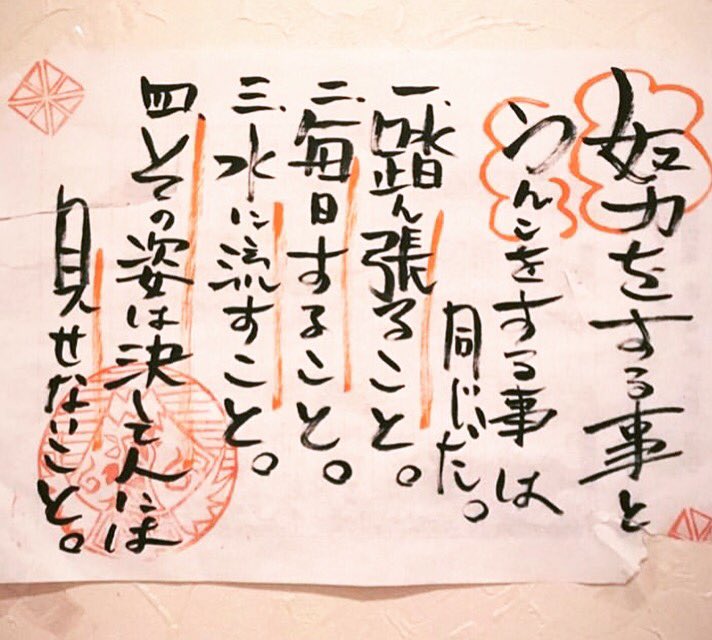 努力をする事と
うんこをする事は
同じだ。
一、踏ん張ること。
二、毎日すること。
三、水に流すこと。
四、その姿は決して人には
見せないこと。